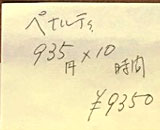 ペナルティ
935円×10時間
¥9350